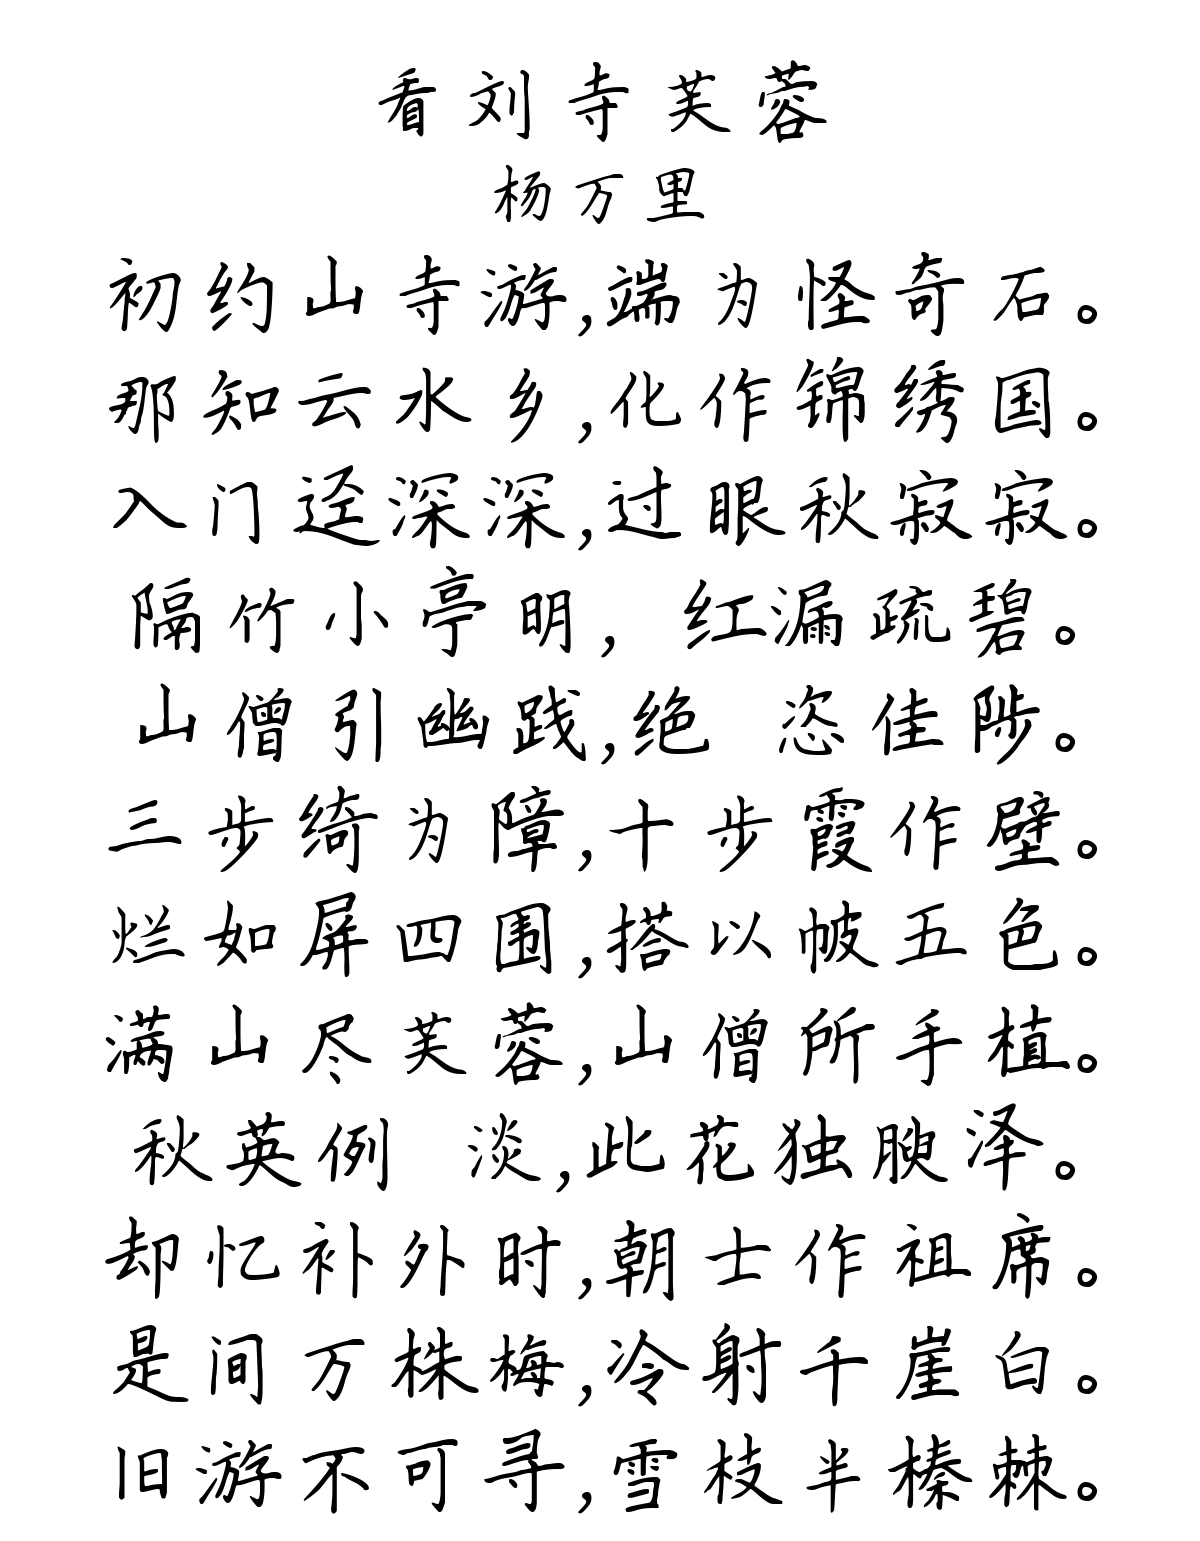 看刘寺芙蓉
杨万里
初约山寺游,端为怪奇石。
那知云水乡,化作锦绣国。
入门迳深深,过眼秋寂寂。
隔竹小亭明, 红漏疏碧。
山僧引幽践,绝 恣佳陟。
三步绮为障,十步霞作壁。
烂如屏四围,搭以帔五色。
满山尽芙蓉,山僧所手植。
秋英例 淡,此花独腴泽。
却忆补外时,朝士作祖席。
是间万株梅,冷射千崖白。
旧游不可寻,雪枝半榛棘。